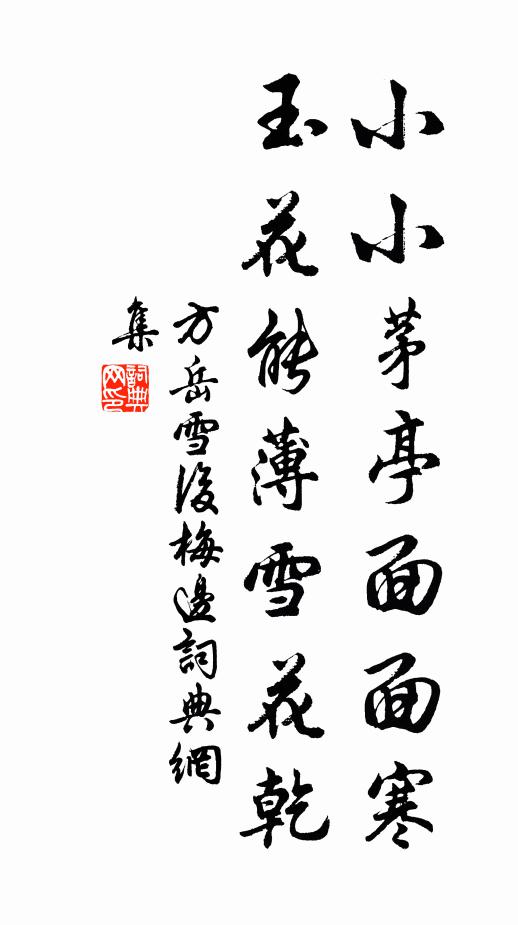 小小茅亭面面寒
玉花能薄雪花乾
方岳雪後梅邊詞典網
集
詞典
网印